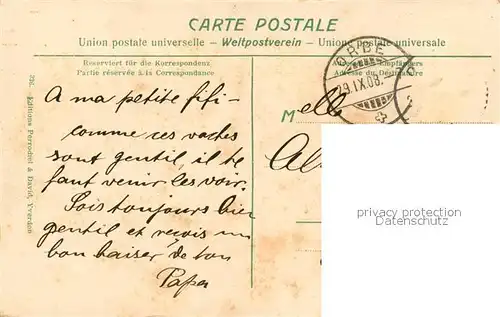 CARTE POSTALE
Union postale universelle – Weltpostverein – Union postale universale
Reserviert für die Korrespondenz
Partie réservée à la Correspondance
Adresse du Destinataire
ORBE
A ma petite fifi –
Melle
comme ces vaches
sont gentil, il te
faut venir les voir.
Sois toujours bien
gentil et reçois un
bon baiser de ton
Papa
Editions Perrochet & David, Yverdon
privacy protection watermark
Datenschutz Wasserzeichen